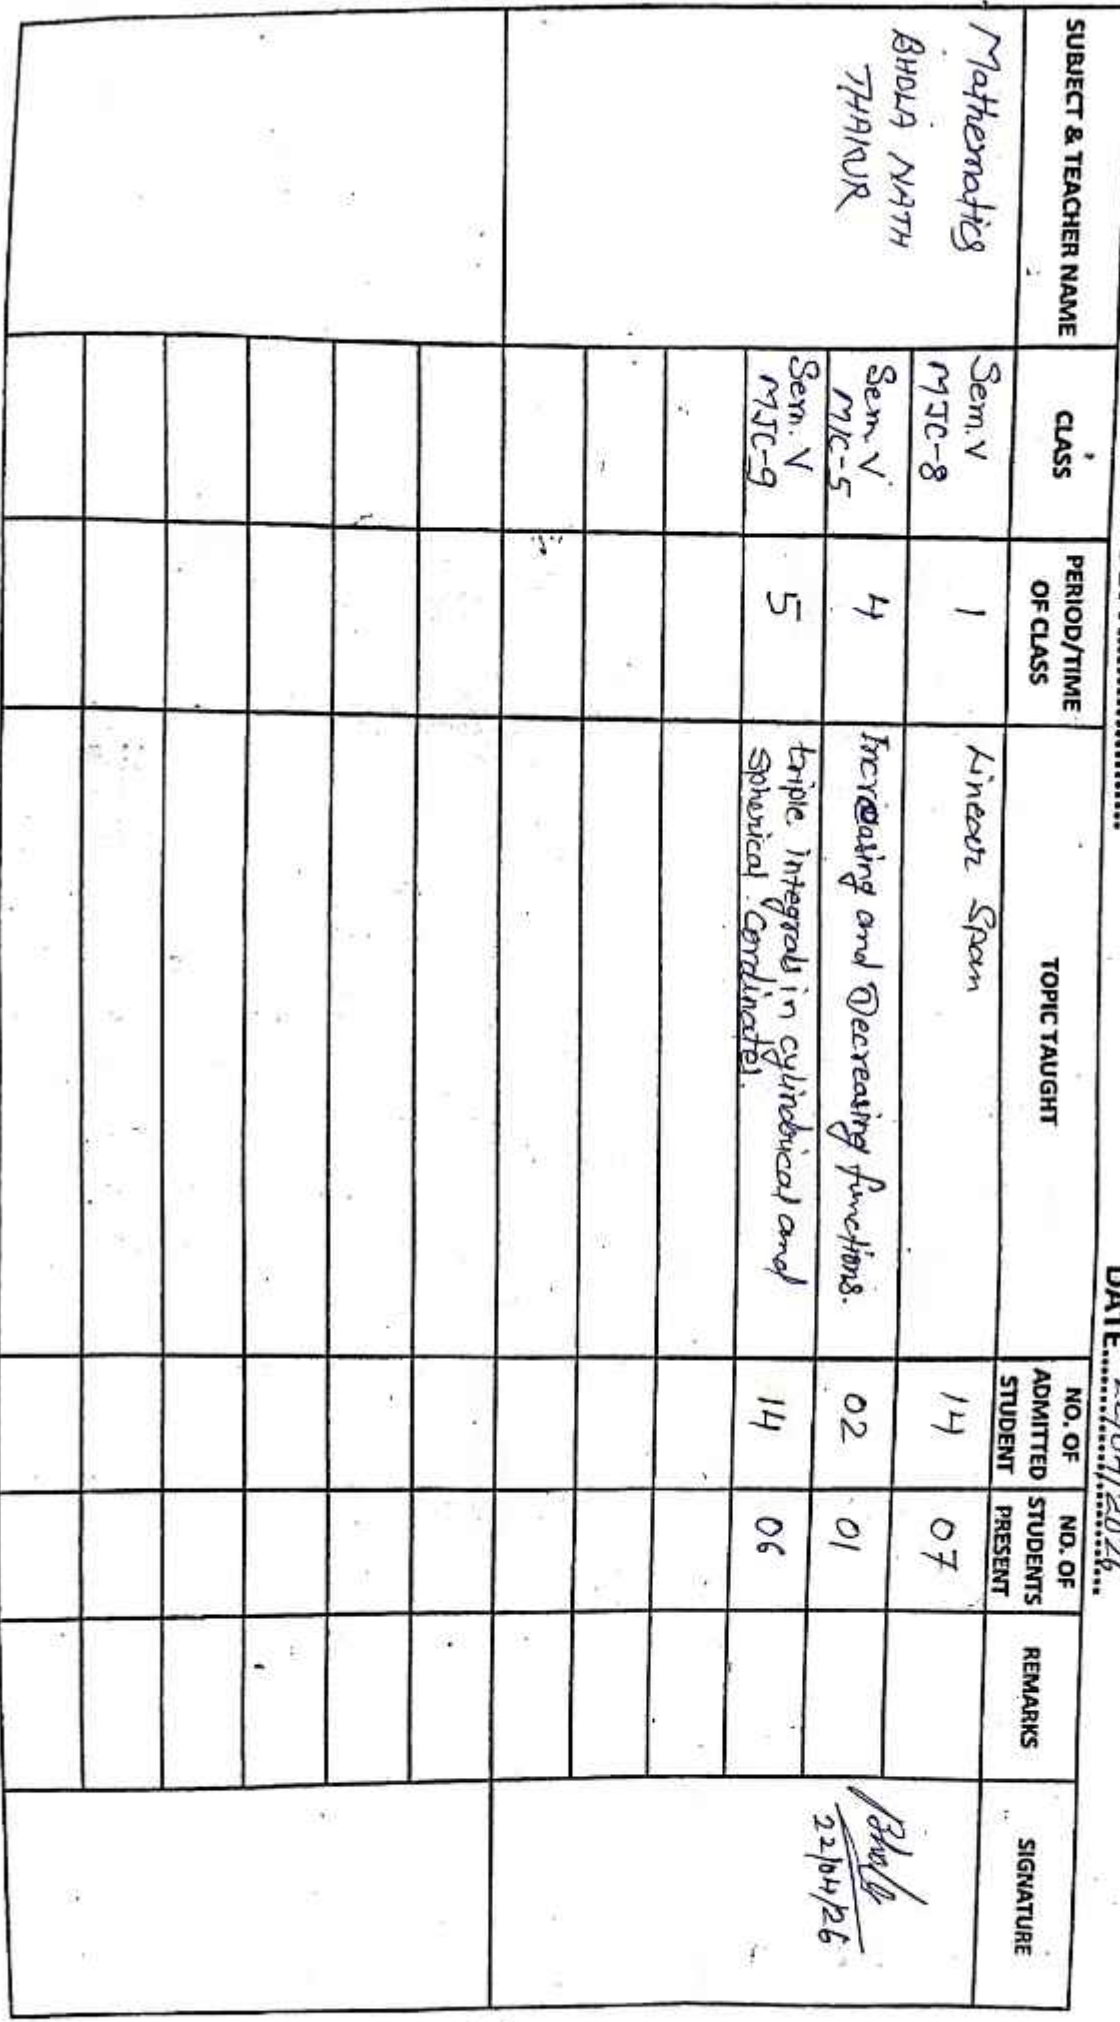 DATE
SUBJECT & TEACHER NAME
CLASS
PERIOD/TIME
OF CLASS
TOPIC TAUGHT
NO. OF
ADMITTED
STUDENT
NO. OF
STUDENTS
PRESENT
REMARKS
SIGNATURE
Mathematics
BHOLA NATH
THAKUR
Sem. V
MJC-8
1
Linear Span
14
07
Sem. V
MIC-5
4
Increasing and Decreasing functions.
02
01
Sem. V
MJC-9
5
triple integrals in cylindrical and
spherical cordinates.
14
06
22/04/26